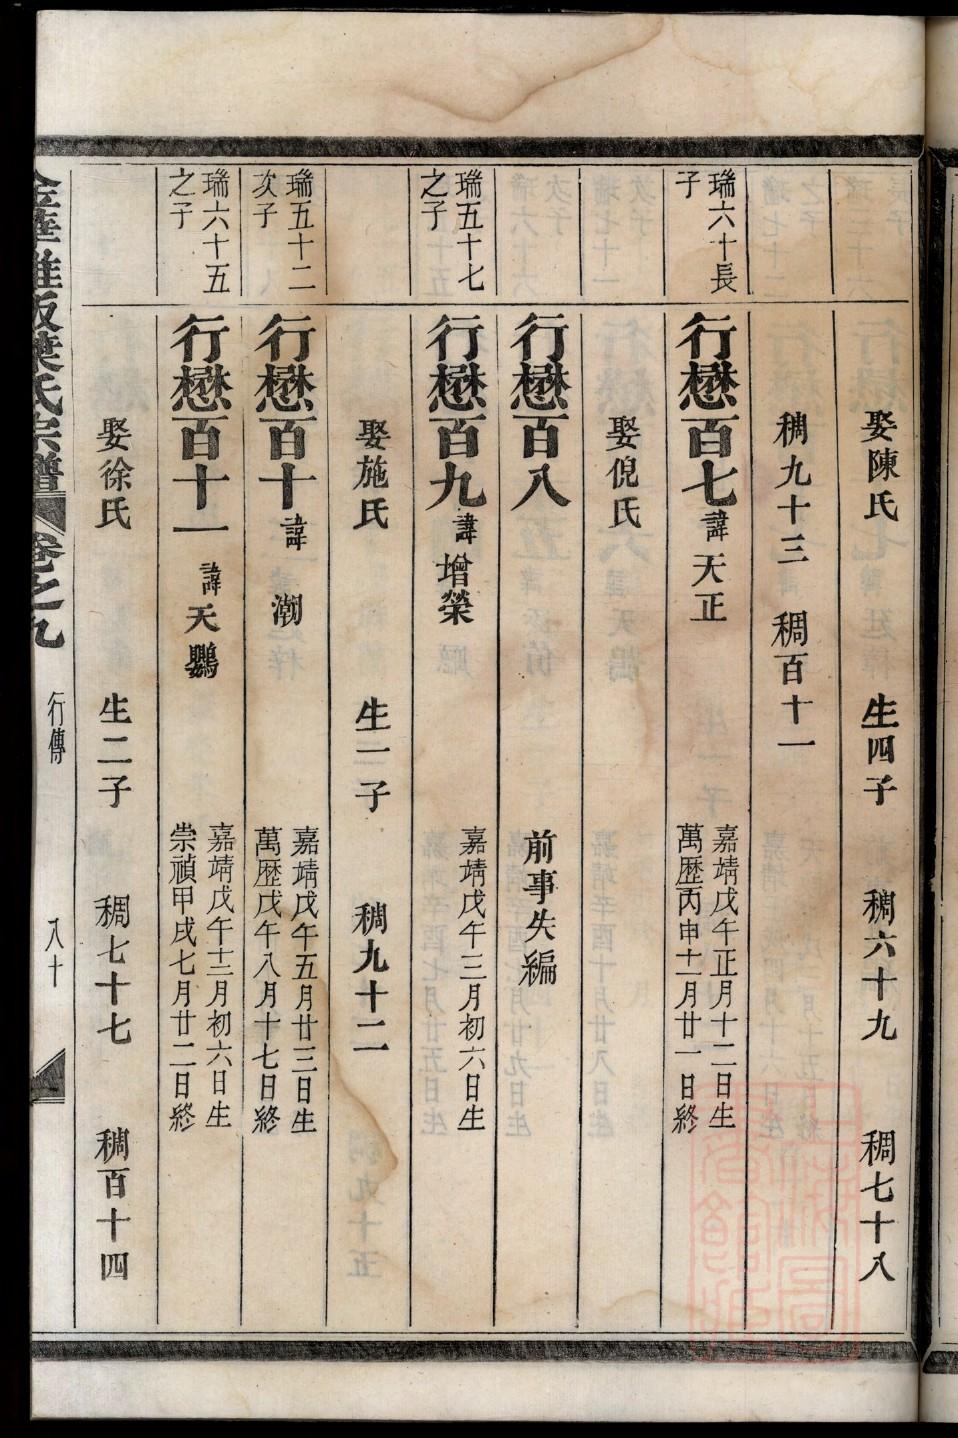 娶陳氏 生四子 稠六十九 稠七十八
稠九十三 稠百十一
瑞六十長子
行懋百七 諱天正 嘉靖戊午正月十二日生
萬歷丙申十一月廿一日終
娶倪氏
行懋百八 前事失編
瑞五十七之子
行懋百九 諱增榮 嘉靖戊午三月初六日生
娶施氏 生一子 稠九十二
瑞五十二次子
行懋百十 諱潮 嘉靖戊午五月廿三日生
萬歷戊午八月十七日終
瑞六十五之子
行懋百十一 諱天鸚 嘉靖戊午十二月初六日生
崇禎甲戌七月廿二日終
娶徐氏 生二子 稠七十七 稠百十四
葉氏宗譜 卷之九 行傳 八十